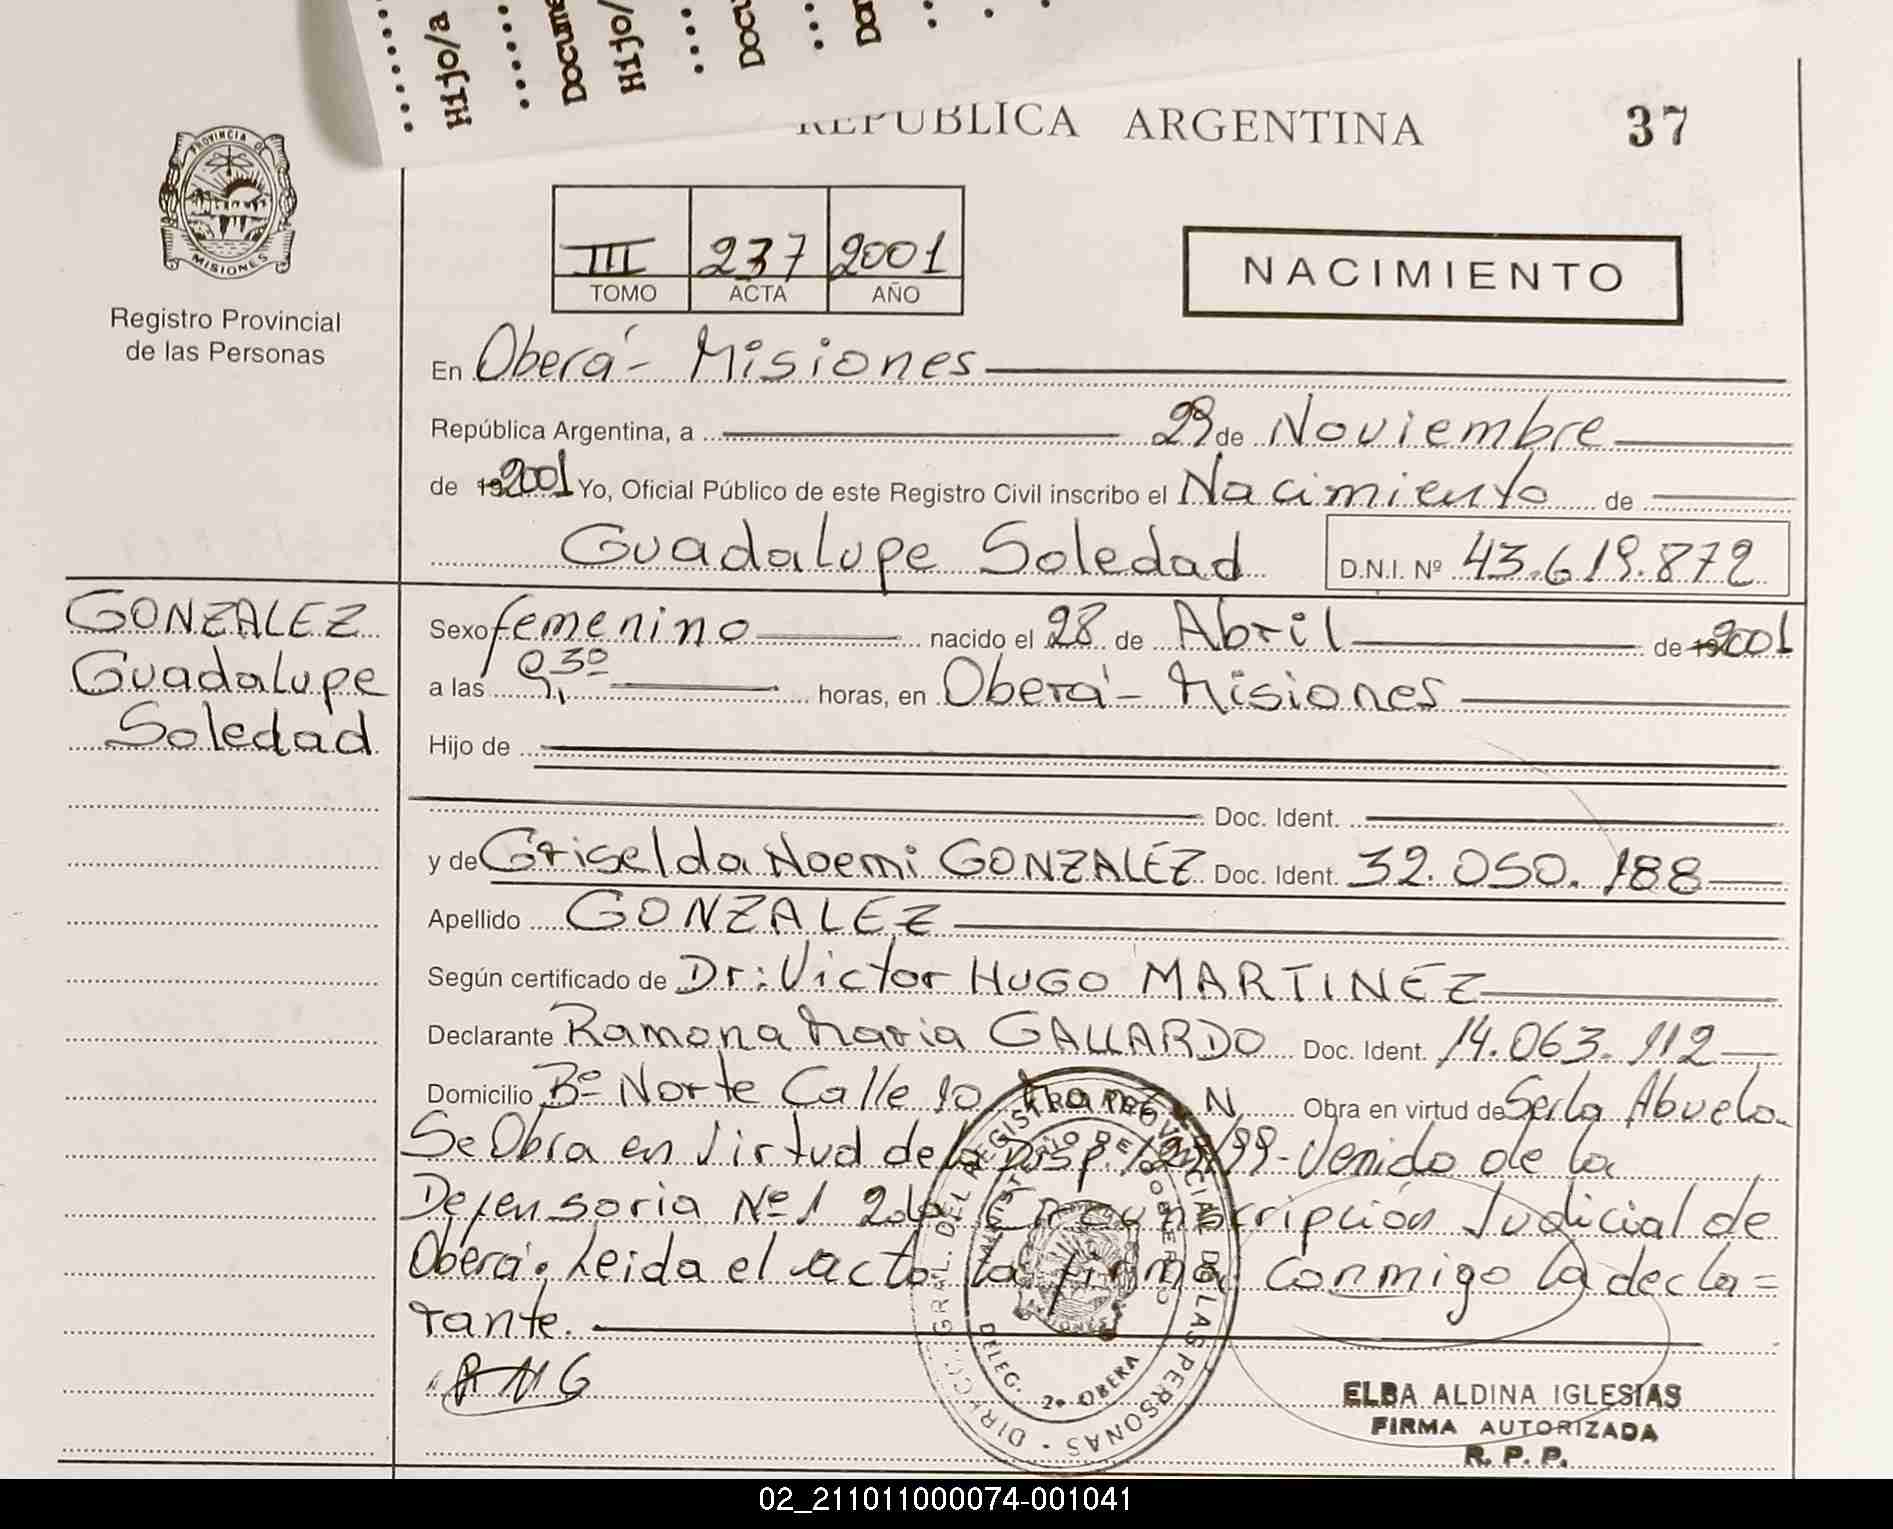 Hijo/a
Hijo/
REPUBLICA ARGENTINA
37
PROVINCIA DE
MISIONES
Registro Provincial
de las Personas
III 237 2001
TOMO ACTA AÑO
NACIMIENTO
En Oberá - Misiones
República Argentina, a 29 de Noviembre
de 19 2001 Yo, Oficial Público de este Registro Civil inscribo el Nacimiento de
Guadalupe Soledad D.N.I. Nº 43.619.872
GONZALEZ
Guadalupe
Soledad
Sexo femenino nacido el 28 de Abril de 19 2001
a las 9,30 horas, en Oberá - Misiones
Hijo de
Doc. Ident.
y de Griselda Noemi GONZALEZ Doc. Ident. 32.050.188
Apellido GONZALEZ
Según certificado de Dr: Victor HUGO MARTINEZ
Declarante Ramona Maria GALLARDO Doc. Ident. 14.063.112
Domicilio Bº Norte Calle 10 N Obra en virtud de Ser la Abuela.
Se Obra en Virtud de la Disp. /99 - Venido de la
Defensoria Nº 1 2da Circunscripción Judicial de
Oberá. Leida el acta la firma conmigo la decla=
rante.
DIRECC. GRAL. DEL REGISTRO PROVINCIAL DE LAS PERSONAS
MINISTERIO DE GOBIERNO
DELEG. 2º OBERA
RMG
ELBA ALDINA IGLESIAS
FIRMA AUTORIZADA
R. P. P.
02_211011000074-001041